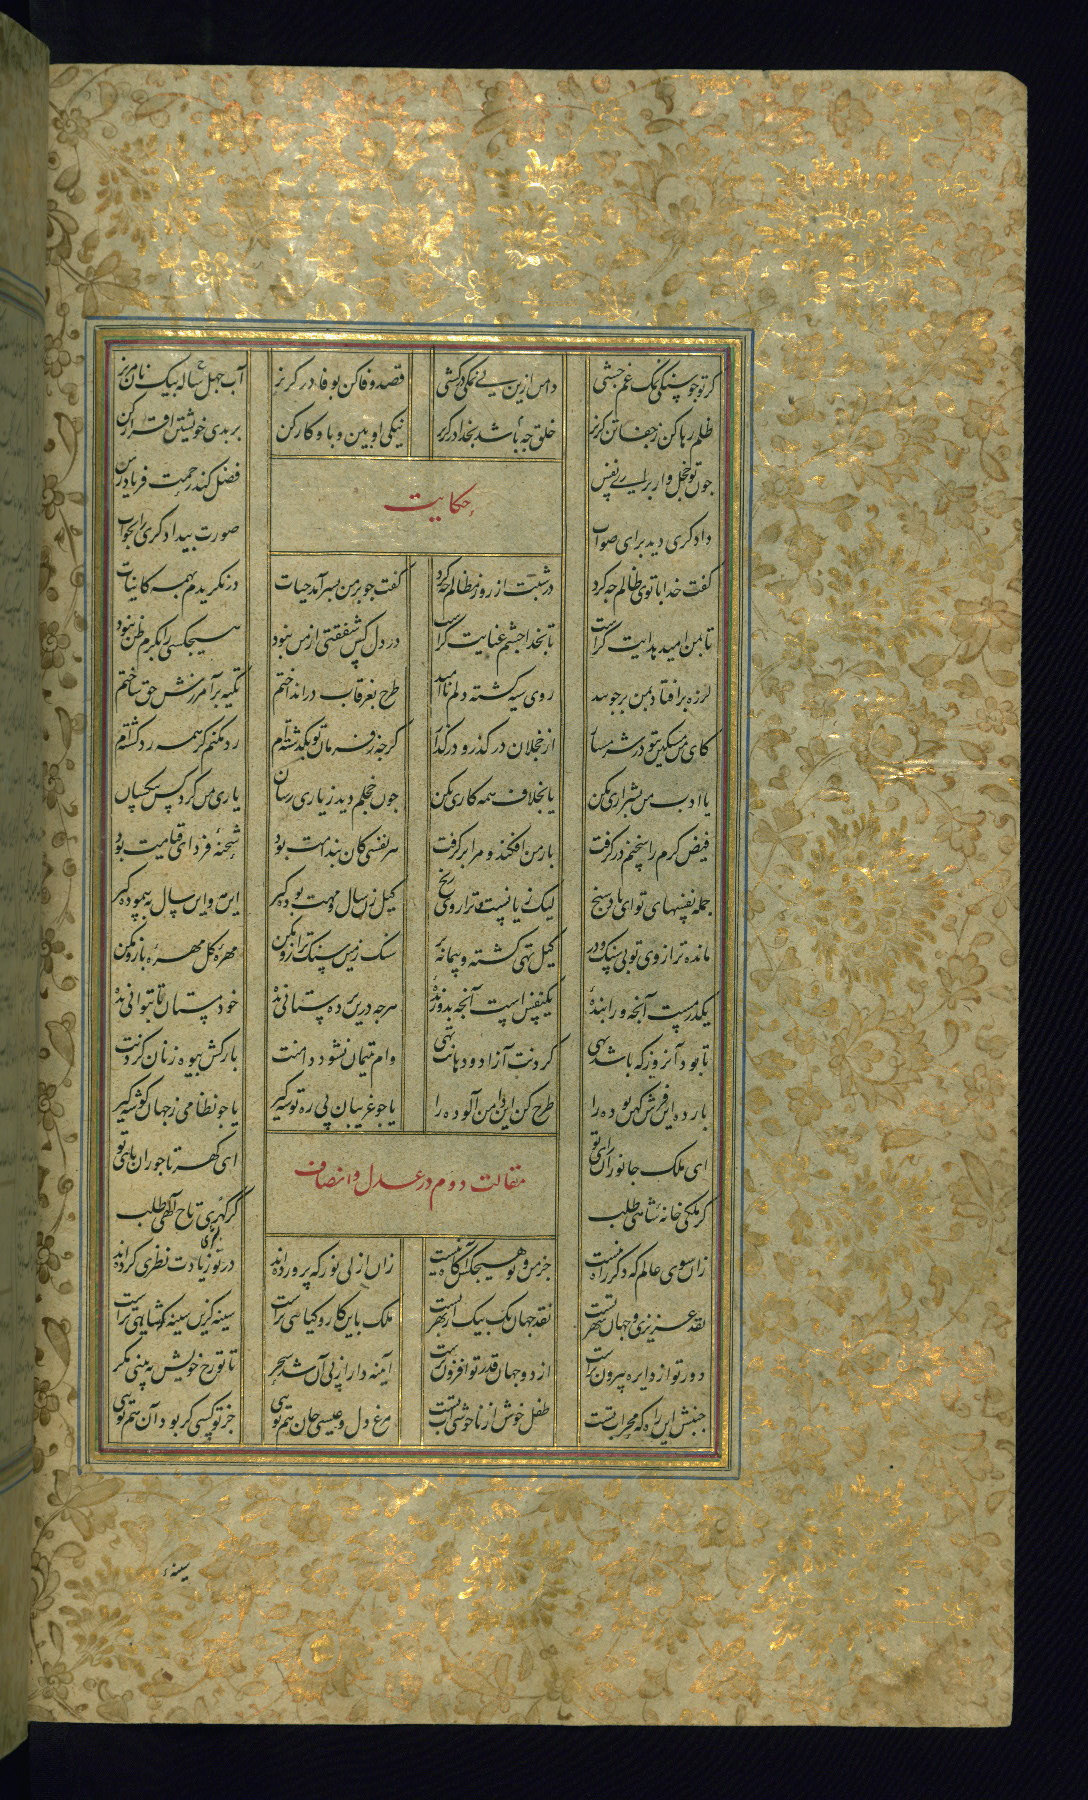 کر توجو سنکی نمک غم جشی دامن ازین بی نمکی درکشی قصد وفا کن بوفا در کریز آب جهل ساله بیک نان مریز
ظلم رها کن ز جفا تن کریز خلق جه باشد بخدا در کریز نیکی او بین و باو کار کن بر بدی خویشتن اقرار کن
جون تو خجل وار براری نفس فضل کند رحمت فریادرس
حکایت
دادکری دید برای صواب صورت بیدادکری را بخواب
کفت خدا با توی ظالم جه کرد در شبت از روز مظالم جه کرد کفت جو بر من بسر آمد حیات درنکریدم بهمه کاینات
تا بمن امید هدایت کراست یا بخدا جشم عنایت کراست در دل کس شفقتی از من نبود هیجکسی را بکرم ظن نبود
لرزه برافتاد بمن بر جو بید روی سیه کشته و دلم ناامید طرح بغرقاب درانداختم تکیه بر آمرزش حق ساختم
کای من مسکین بتو در شرمسار از خجلان درکذر و درکذار کرجه ز فرمان تو بکذشته ام رد مکنم کز همه رد کشته ام
یا ادب من بشراری بکن یا بخلاف همه کاری بکن جون خجلم دید ز یاری رسان یاری من کرد کس بی کسان
فیض کرم را سخنم درکرفت بار من افکند و مرا برکرفت هر نفسی کان بندامت بود شحنهٔ فردای قیامت بود
جمله نفسهای تو ای باد سنج لیک زیانست ترازوی رنج کیل زن سال و مهت بوده کیر این مه و این سال بپیموده کیر
مانده ترازوی تو بی سنک و در کیل تهی کشته و پیمانه پر سنک زمین سنک ترازو مکن مهرهٔ کل مهرهٔ بازو مکن
یکدرمست آنجه ورا بندهٔ یکنفس است آنجه بدو زندهٔ هرجه درین برده ستانی بده خود مستان تا بتوانی بده
تا بود آنروز که باشد بهی کردنت آزاد و دهانت تهی وام یتیمان نشود دامنت بارکش بیوه زنان کردنت
باز ده این فرش کهن بوده را طرح کن این دامن آلوده را یا جو غریبان پی ره توشه کیر یا جو نظامی ز جهان کوشه کیر
ای ملک جانوران رای تو ای کهر تاجوران پای تو
مقالت دوم در عدل و انصاف
کر ملکی خانهٔ شاهی طلب کر کهری تاج الهی طلب
زان سوی عالم که دکر راه نیست جز من و تو هیجکس آکاه نیست زان ازلی نور که پرورده اند در تو زیادت نظری کرده اند
نقد عزیزی و جهان شهر تست نقد جهان یک بیک از بهر تست ملک باین کار و کیایی تراست سینه کزین سینه کشایی تراست
دور تو از دایره بیرون ترست از دو جهان قدر تو افزونترست آینه دار از پی آن شد سحر تا تو رخ خویش ببینی مکر
جنبش این راه که محراب تست طفل خوش از ناخوشی آب تست مرغ دل و عیسی جان هم توی جز تو کسی کر بود آن هم توی
سینهٔ